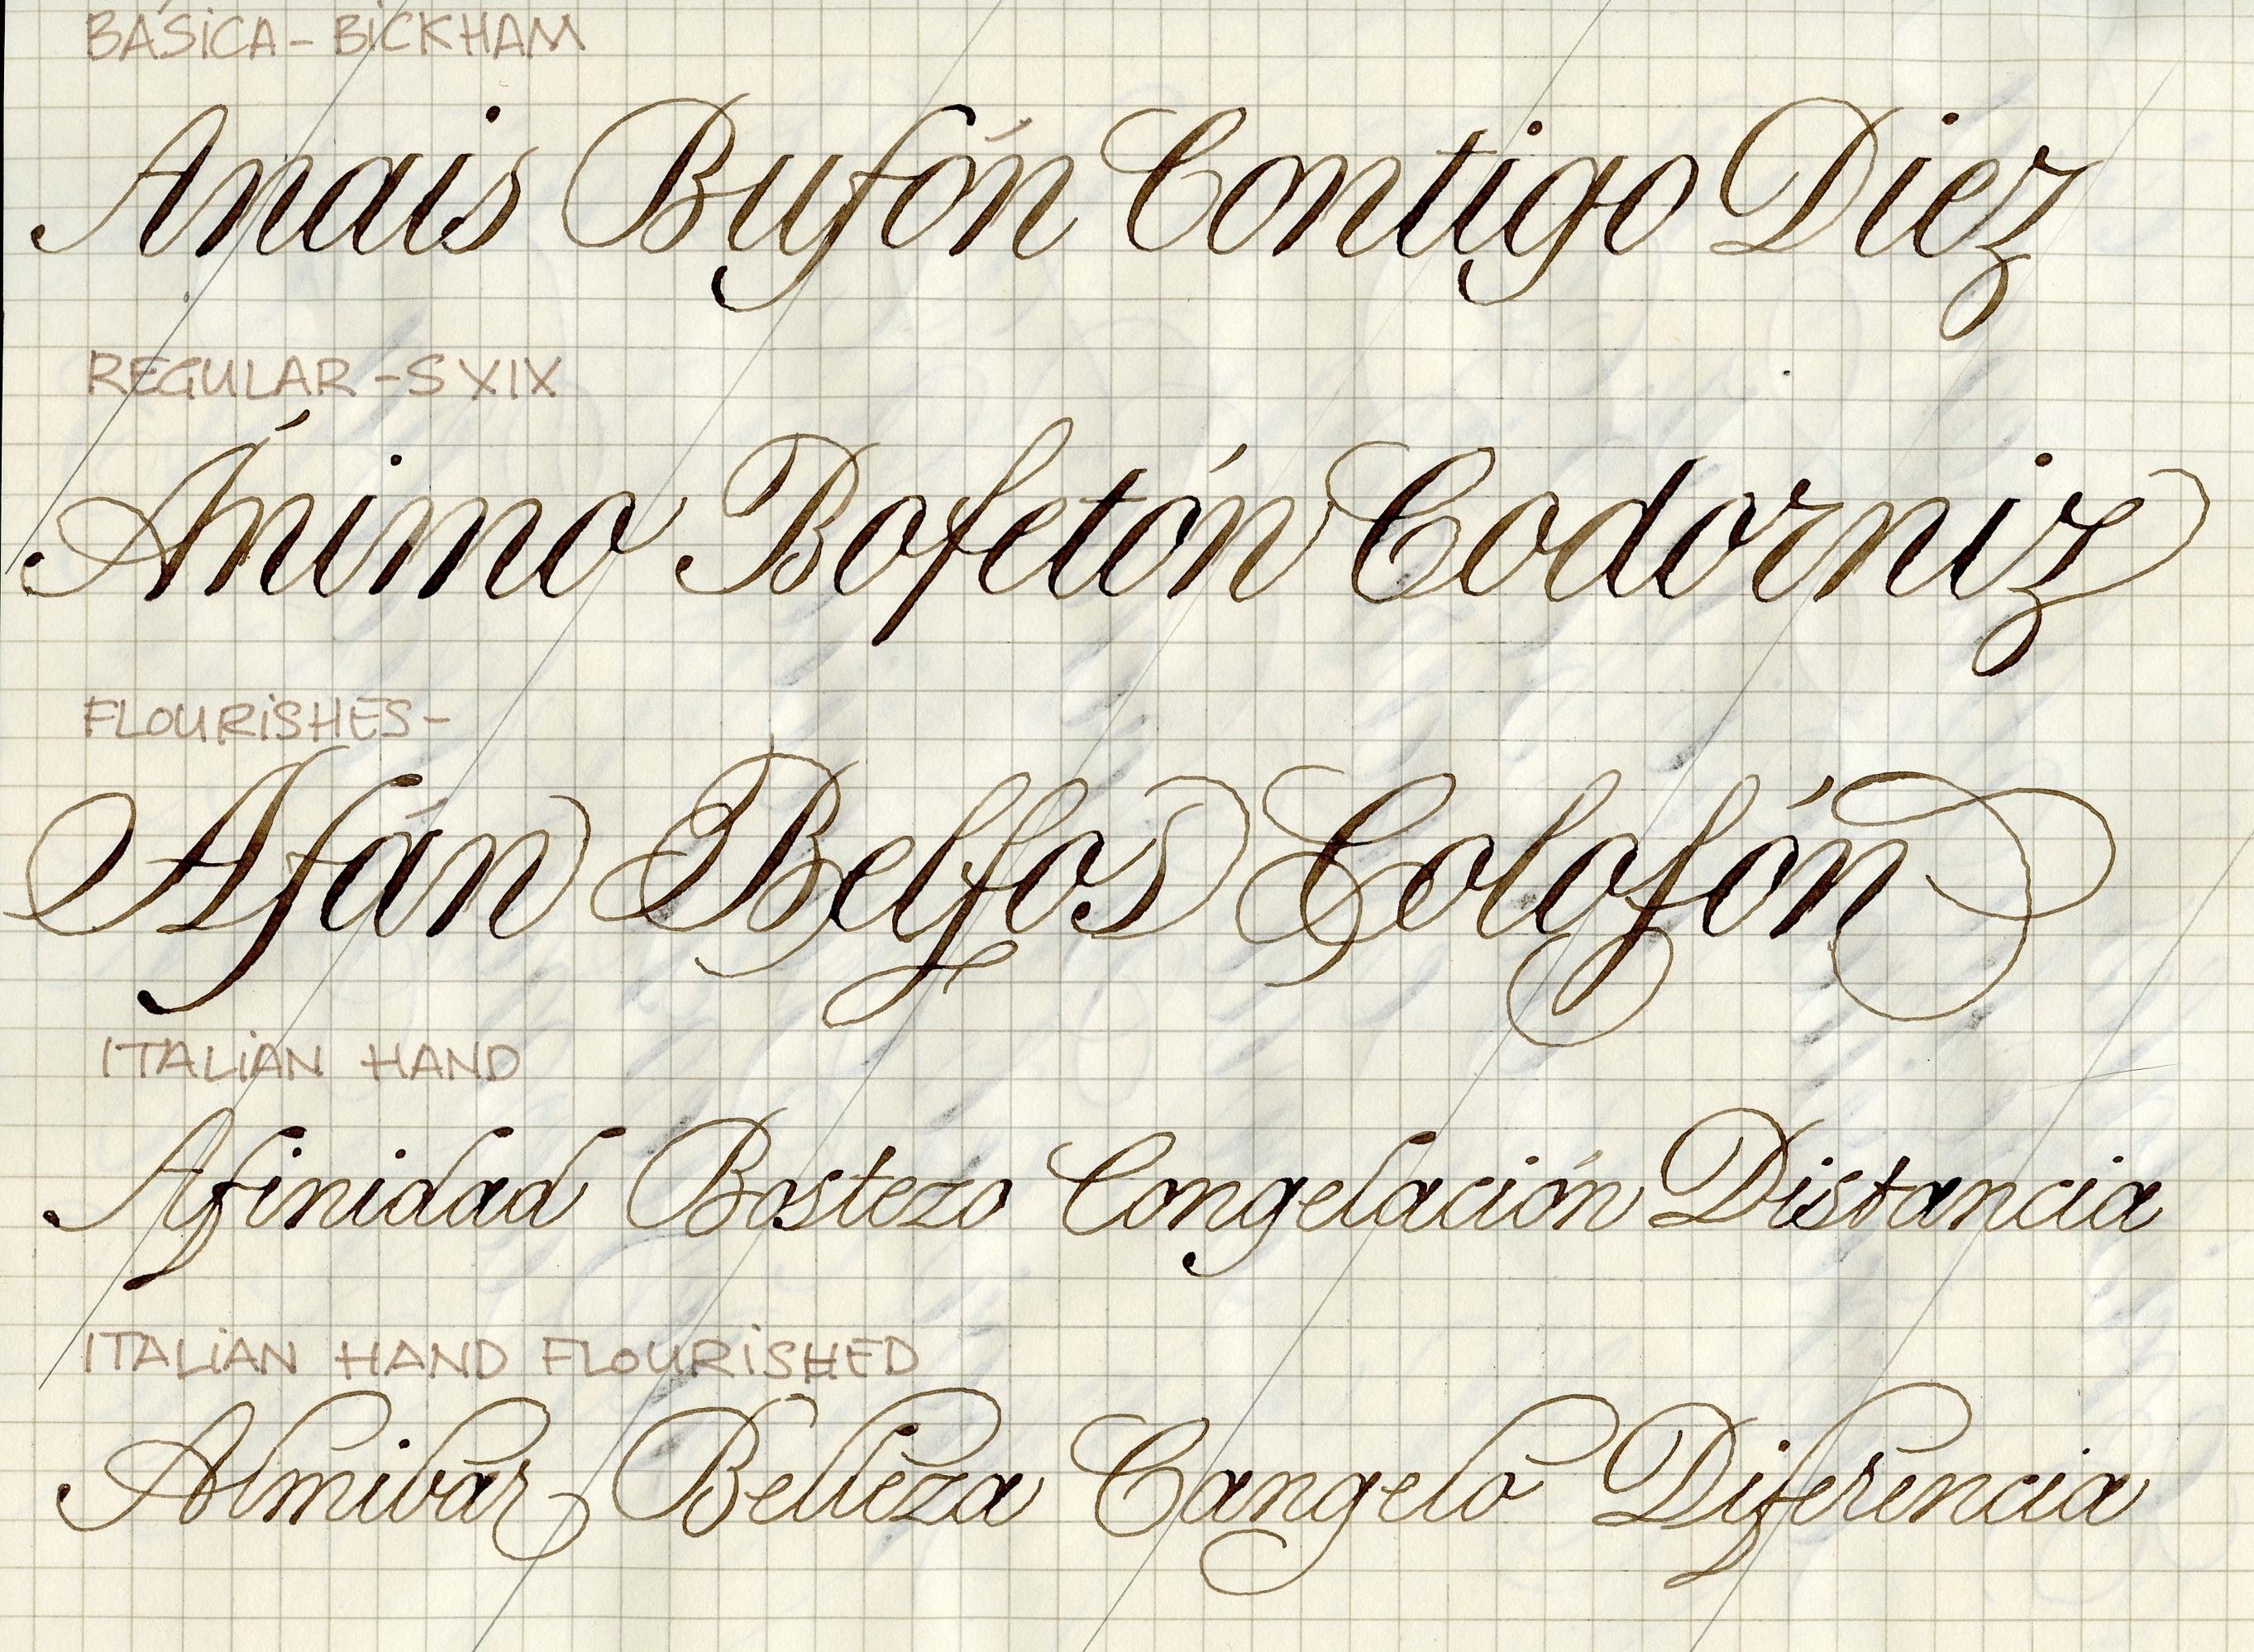 BÁSICA - BICKHAM
Anais Bufón Contigo Diez
REGULAR - S XIX
Ánimo Bofetón Codorniz
FLOURISHES -
Afán Belfos Colofón
ITALIAN HAND
Afinidad Bostezo Congelación Distancia
ITALIAN HAND FLOURISHED
Almibar Belleza Cangelo Diferencia